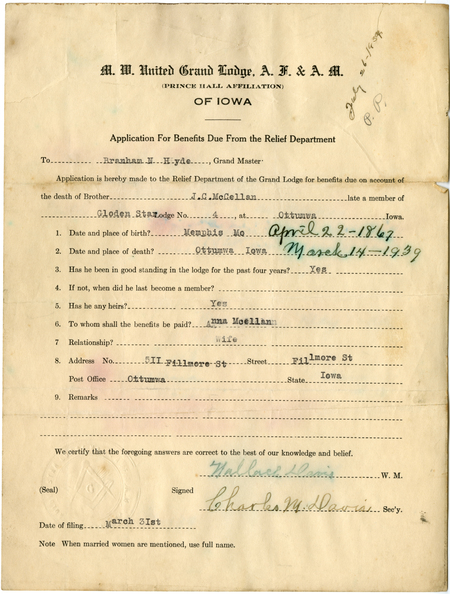 July 26-1939
P. P.
M. W. United Grand Lodge, A. F. & A. M.
(PRINCE HALL AFFILIATION)
OF IOWA
Application For Benefits Due From the Relief Department
To Branham N Hyde, Grand Master
Application is hereby made to the Relief Department of the Grand Lodge for benefits due on account of
the death of Brother J.C.McCellan late a member of
Gloden Star Lodge No. 4, at Ottumwa Iowa.
1. Date and place of birth? Memphis Mo April 22-1867
2. Date and place of death? Ottumwa Iowa March 14-1939
3. Has he been in good standing in the lodge for the past four years? Yes
4. If not, when did he last become a member?
5. Has he any heirs? Yes
6. To whom shall the benefits be paid? Anna Mcellann
7 Relationship? Wife
8 Address No. 5II Fillmore St Street Fillmore St
Post Office Ottumwa State Iowa
9. Remarks
We certify that the foregoing answers are correct to the best of our knowledge and belief.
Wallace Davis W. M.
(Seal) Signed Charles M. Davis Sec'y.
Date of filing March 3Ist
Note When married women are mentioned, use full name.